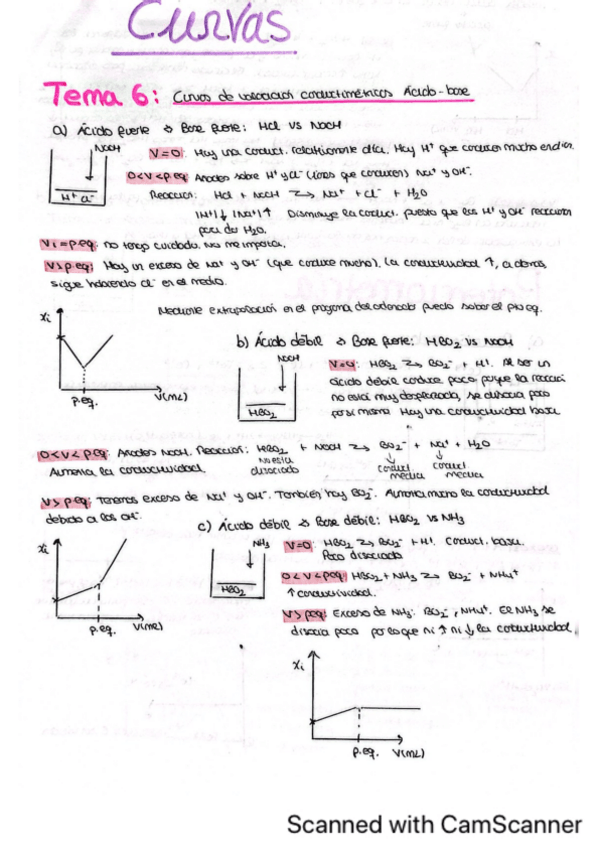 Curvas
Tema 6: Curvas de valoración conductimétricas Ácido-base
a) Ácido fuerte → Base fuerte: HCl VS NaOH
NaOH
H+ Cl-
V=0: Hay una conduct. relativamente alta. Hay H+ que conducen mucho
0<V<p.eq: Añades sobre H+ y Cl- (iones que conducen) Na+ y OH-.
Reacción: HCl + NaOH ⇄ Na+ + Cl- + H2O
|H+|↓ |Na+|↑ Disminuye la conduct. puesto que los H+ y OH- reaccionan
para dar H2O.
V=p.eq: no tengo cuidado. No me importa.
V>p.eq: Hay un exceso de Na+ y OH- (que conduce mucho). La conductividad ↑, además
sigue habiendo Cl- en el medio.
Mediante extrapolación en el programa del ordenador puedo saber el pto eq.
Xi
p.eq.
V(mL)
b) Ácido débil → Base fuerte: HBO2 VS NaOH
NaOH
HBO2
V=0: HBO2 ⇄ BO2- + H+. Al ser un
ácido débil conduce poco porque la reacción
no está muy desplazada, se disocia poco
por sí misma. Hay una conductividad baja
0<V<p.eq: Añades NaOH. Reacción: HBO2 + NaOH ⇄ BO2- + Na+ + H2O
Aumenta la conductividad.
no está disociado
conduct. media
conduct. media
V>p.eq: Tenemos exceso de Na+ y OH-. También hay BO2-. Aumenta mucho la conductividad
debido a los OH-.
c) Ácido débil → Base débil: HBO2 VS NH3
Xi
p.eq.
V(mL)
NH3
HBO2
V=0: HBO2 ⇄ BO2- + H+. Conduct. baja.
Poco disociado
0<V<p.eq: HBO2 + NH3 ⇄ BO2- + NH4+
↑ conductividad.
V>p.eq: Exceso de NH3. BO2-, NH4+. El NH3 se
disocia poco por lo que ni ↑ ni ↓ la conductividad.
Xi
p.eq.
V(mL)
Scanned with CamScanner